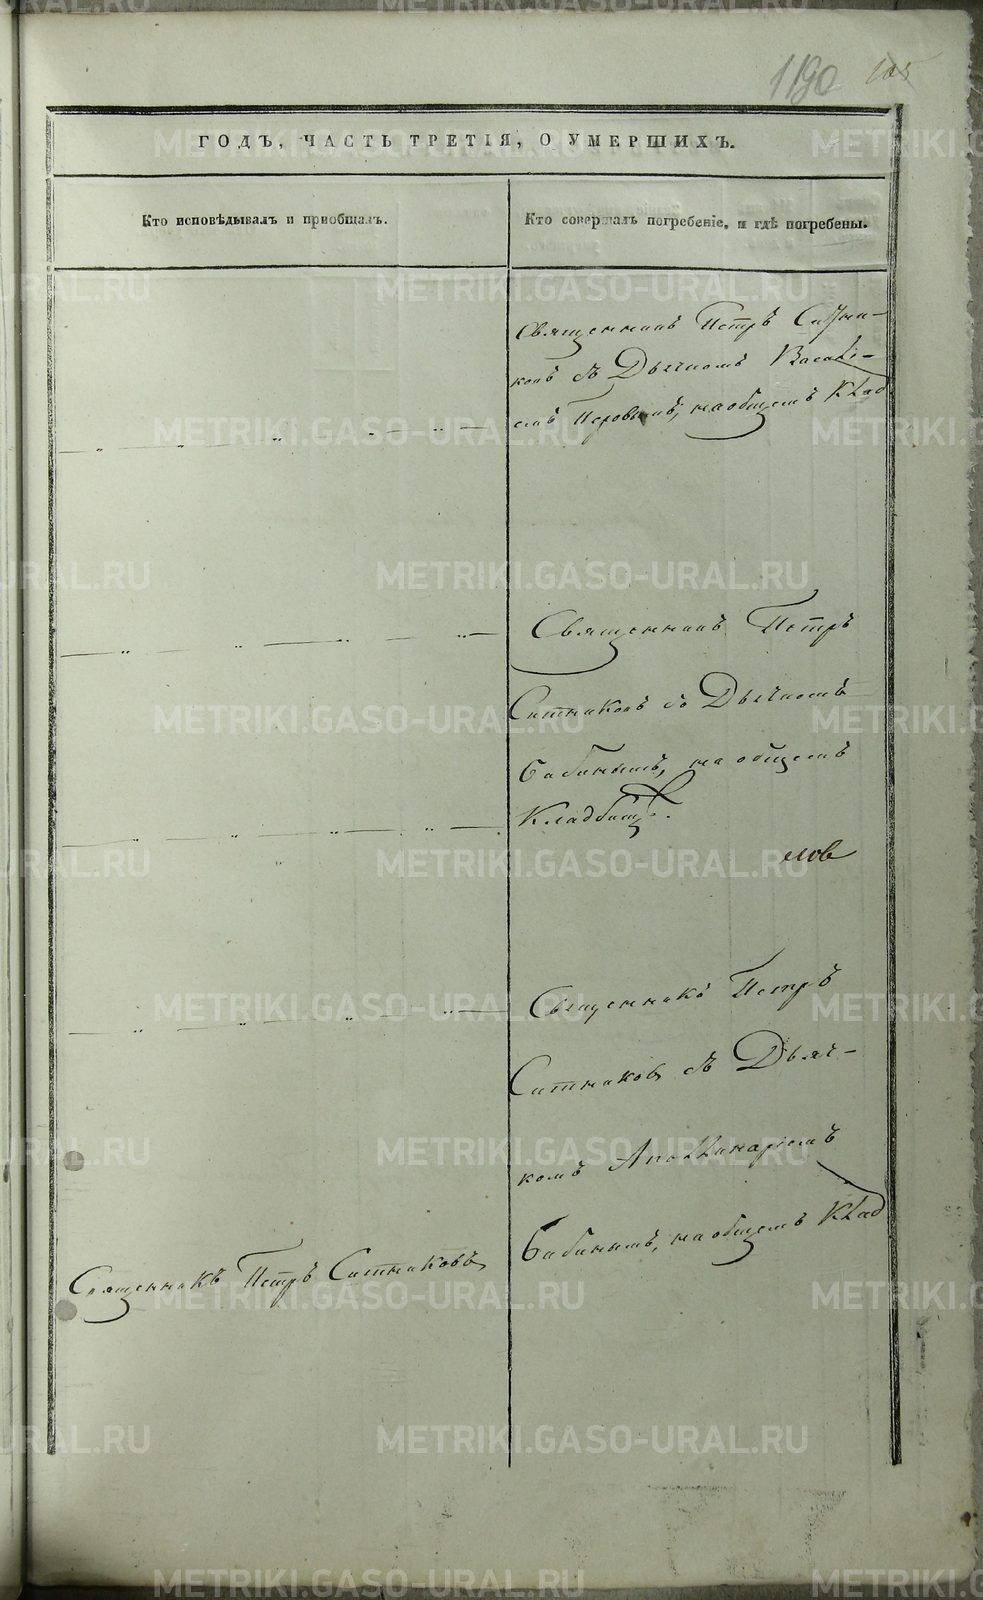 1190
105
ГОДЪ, ЧАСТЬ ТРЕТІЯ, О УМЕРШИХЪ.
Кто исповѣдывалъ и приобщалъ.
Кто совершалъ погребеніе, и гдѣ погребены.
Священникъ Петръ Ситни-
ковъ съ Дьячкомъ Васілі-
емъ Перовымъ, на общемъ Клад
Священникъ Петръ
Ситниковъ съ Дьячкомъ
Бабинымъ, на общемъ
Кладбищѣ.
Священникъ Петръ
Ситниковъ съ Дьяч-
комъ Аполлинаріемъ
Бабинымъ, на общемъ Клад
Священникъ Петръ Ситниковъ
METRIKI.GASO-URAL.RU